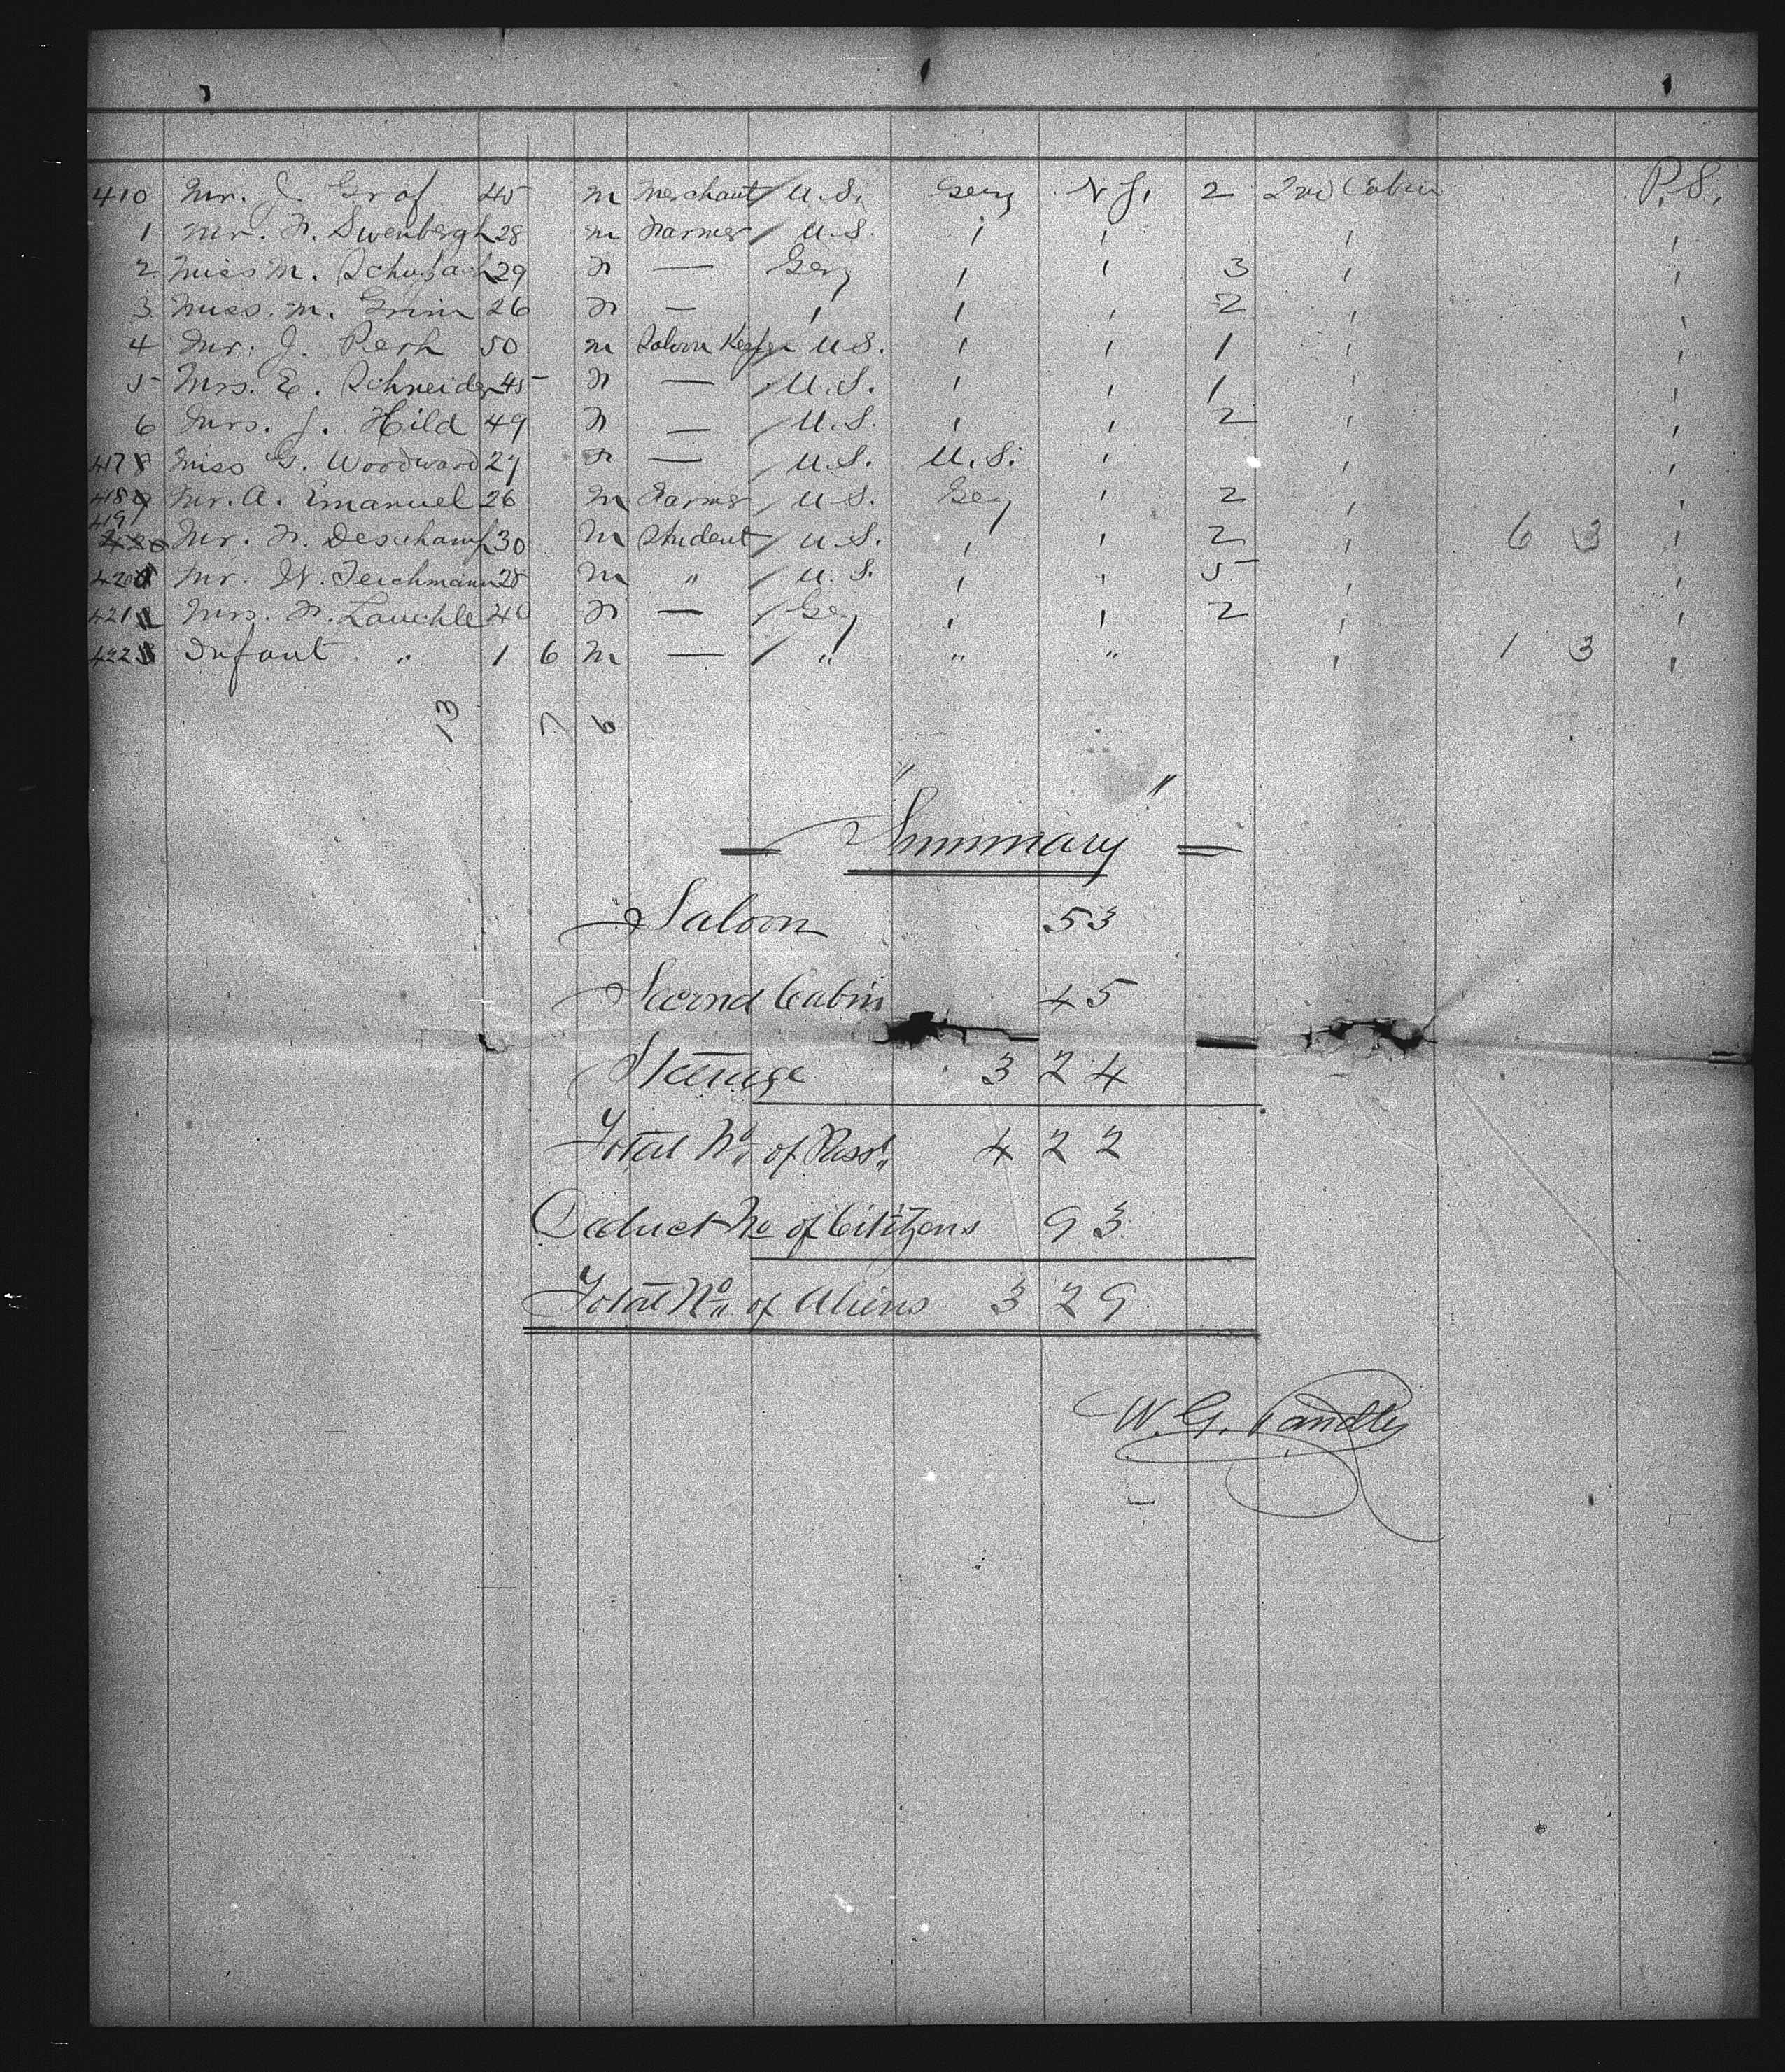 410 Mr. J. Graf 45 m Merchant / U.S. Gery N Y. 2 2nd Cabin P.S.
1 Mr. F. Swenbergh 28 m Farmer / U.S. " " " "
2 Miss M. 29 F — Gery " " 3 " "
3 Miss. M. Grim 26 F — " " " 2 " "
4 Mr. J. 50 m Saloon Keeper / U.S. " " 1 " "
5 Mrs. E. Schneider 45 F — / U.S. " " 1 " "
6 Mrs. J. Hild 49 F — / U.S. " " 2 " "
417 Miss G. Woodward 27 F — / U.S. U.S. " " "
418 Mr. A. Emanuel 26 m Farmer / U.S. Gery " 2 " "
419 Mr. F. Deschamp 30 m Student / U.S. " " 2 " 6 3 "
420 Mr. W. Teichmann 28 m " / U.S. " " 5 " "
421 Mrs. F. Lauchle 40 F — / Gery " " 2 " "
422 Infant " 1 6 m — / " " " " 1 3 "
13 7 6
"Summary"
Saloon 53
Second Cabin 45
Steerage 324
Total No. of Pass. 422
Deduct No of Citizens 93
Total No. of Aliens 329
W. G.